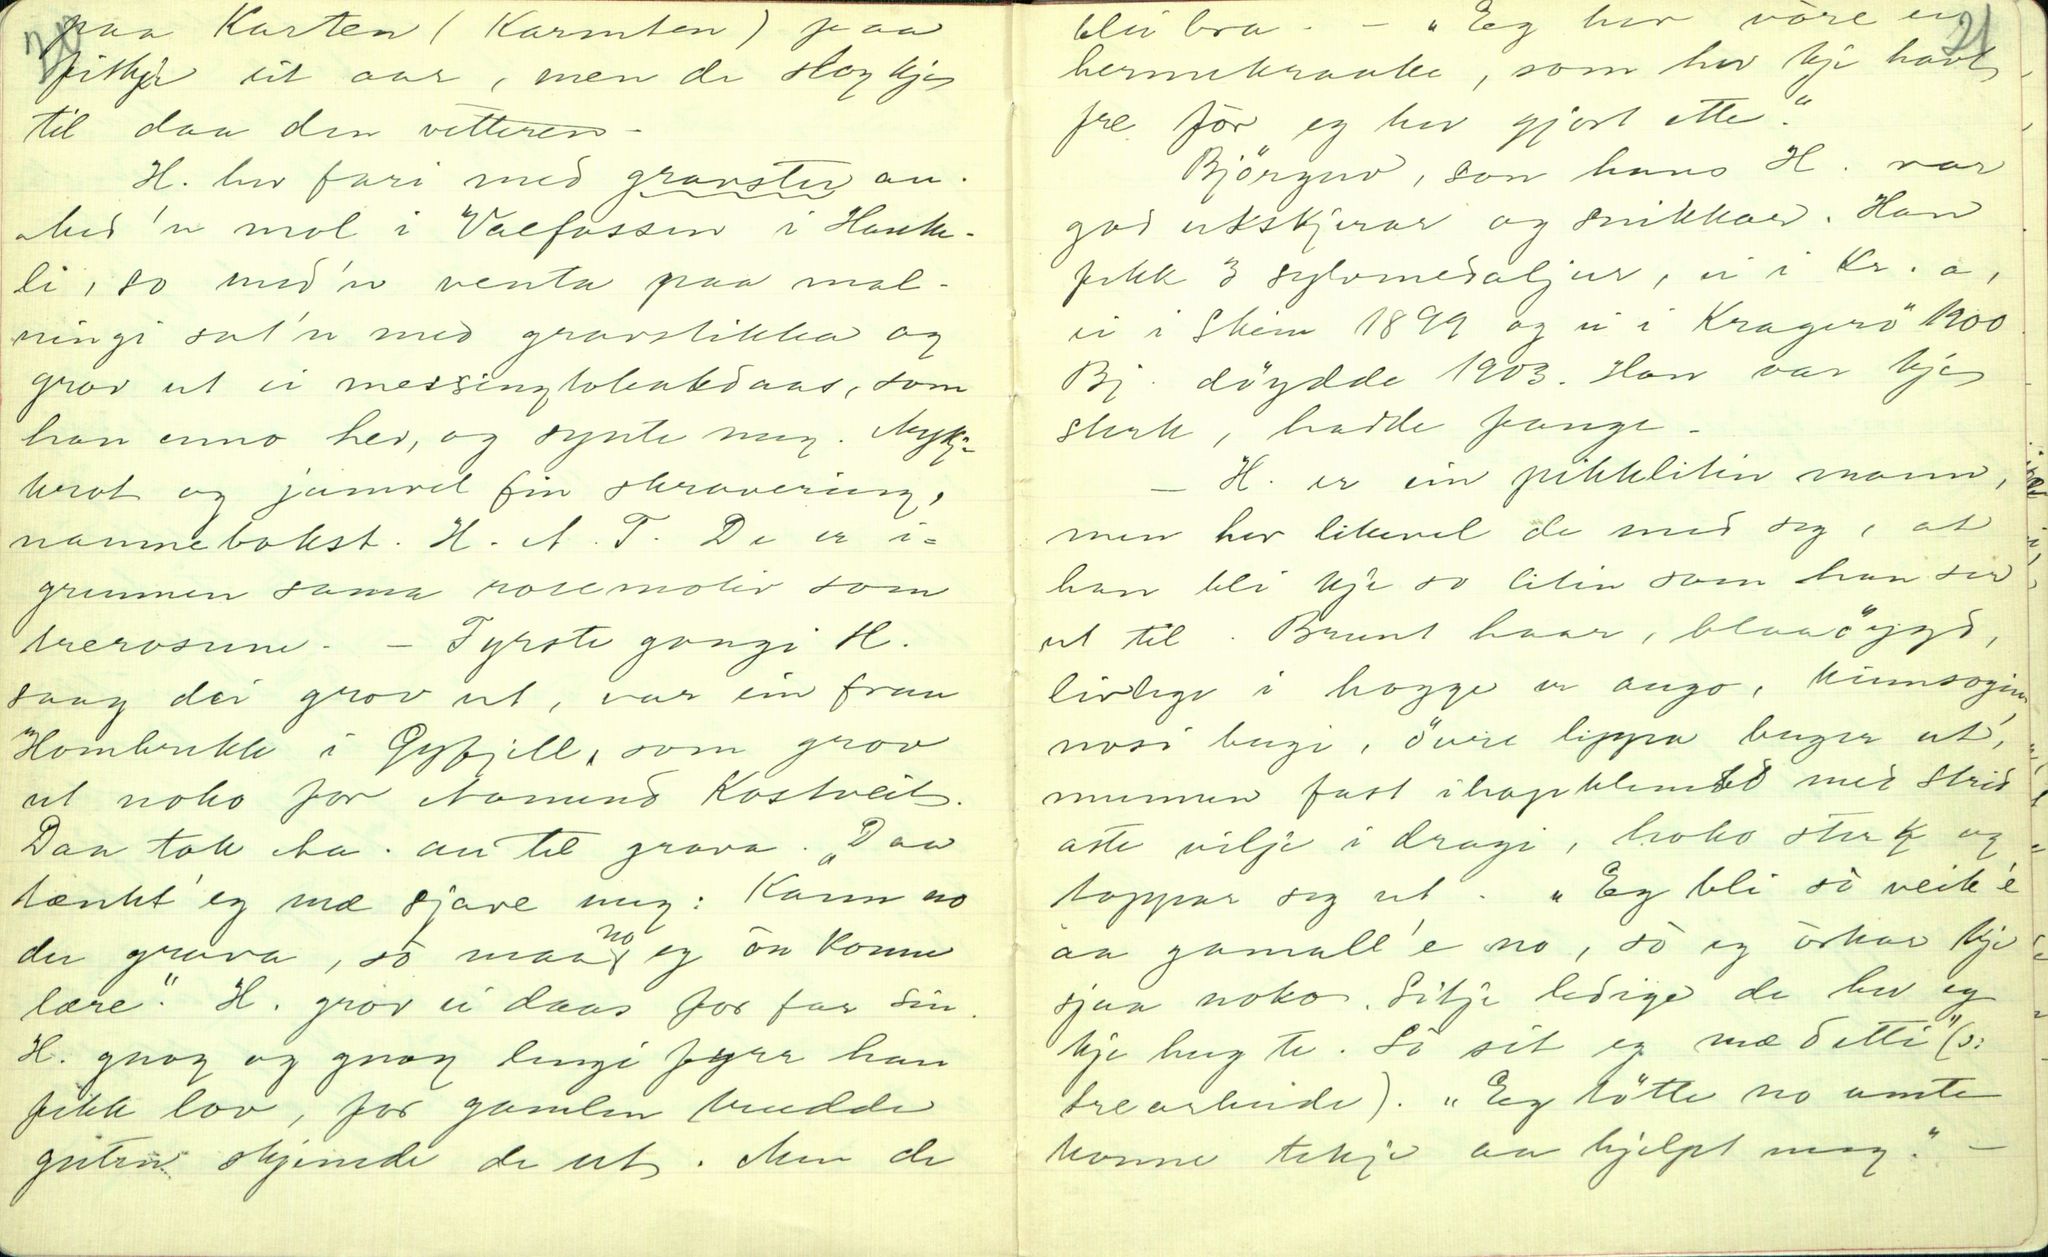 20
paa Karten (Karmten) paa
fiskje eit aar, men de slog kje
til daa den vetteren -
H. hev fari med gravstein au.
Med 'n mol i Vaefossen i Haukeli,
so med'n venta paa malningi
sat'n med gravstikka og
grov ut ei messingtobakdaas, som
han enno hev, og synte meg. Mykje
krot og jamvel fin skravering,
namnebokst. H. A. T. De er i=
grunnen sama rosemotiv som
trerosune. - Fyrste gongi H.
saag dei grov ut, var ein fraa
Hombrukk i Gyfjell, som grov
ut noko for Aamund Kostveit.
Daa tok Aa. au til grava. "Daa
tænkt' eg mæ sjave meg: Kann no
du grava, sò maa no eg òn konne
lære". H. grov ei daas for far sin.
H. gnog og gnog lengi fyrr han
fekk lov, for gamlen trudde
guten skjemde de ut. Men de
21
blei bra. - "Eg hev vòre ei
hermekraake, som hev kje havt
fre før eg hev gjort ette."
Björguv, son hans H. var
god utskjerar og snikkar. Han
fekk 3 sylvmedaljur, ei i Kr.a,
ei i Skien 1899 og ei i Kragerö 1900
Bj. döydde 1903. Han var kje
sterk, hadde pange -
- H. er ein pikkliten mann,
men hev likevel de med seg, at
han bli kje so liten som han ser
ut til. Brunt haar, blaaöygd,
livlege i hogge er augo, kinnsogjen,
nosi bugi, övre lippa buger ut,
munnen fast ihopklemd med strid
aste vilje i dragi, hoko sterk og
toppar seg ut. "Eg bli sò veik'e
aa gamall'e no, sò eg òrkar kje
sjaa noko. Sitje ledige de hev eg
kje hug te. Sò sit eg mæ detti" (ɔ:
trearbeide). "Eg tötte no amte
konne tekje aa hjelpt meg." -